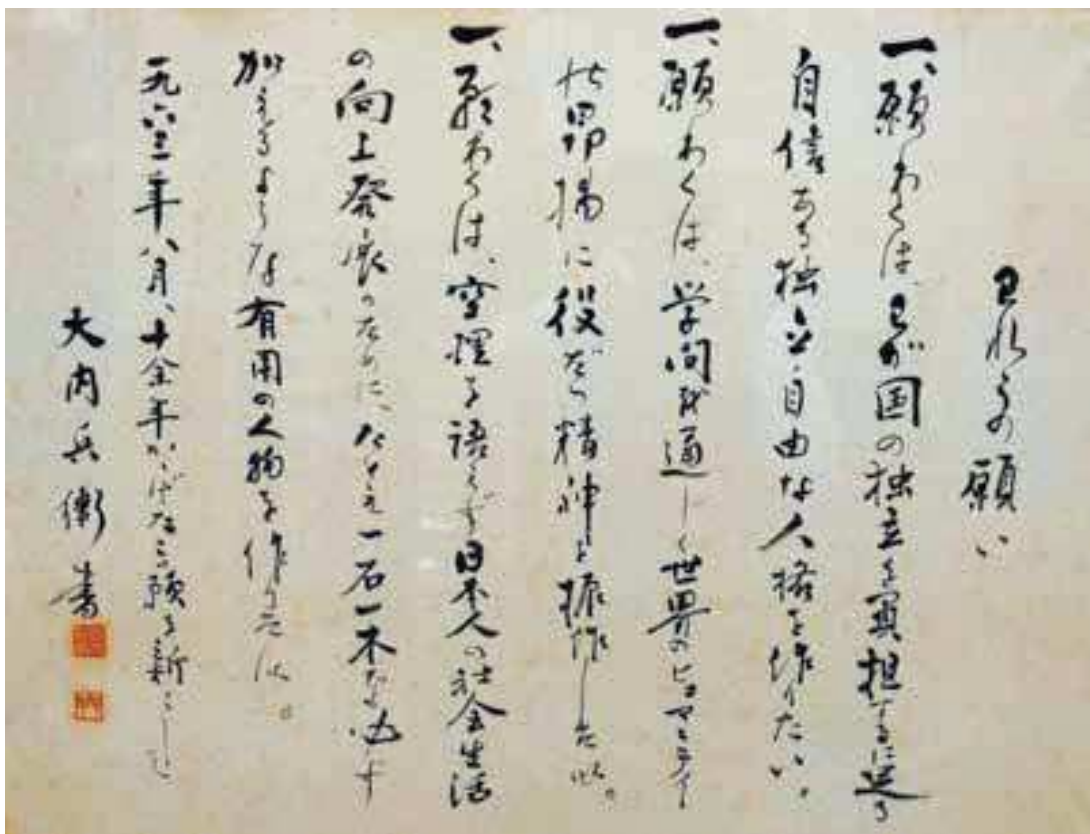 われらの願い
一、願わくは、わが国の独立を負担するに足る
自信ある独立、自由な人格を作りたい。
一、願わくは、学問を通じて世界のヒュマニティ
の昂揚に役だつ精神を振作したい。
一、願わくは、空理を語らず日本人の社会生活
の向上発展のために、たとえ一石一木 必ず
加えるような有用の人物を作りたい。
年八月、十余年かかげたこの願を新
大内兵衛書